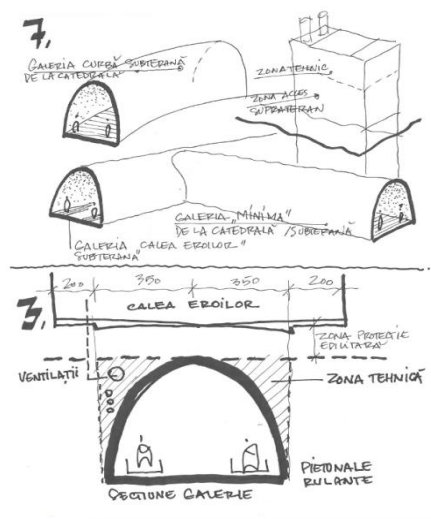 7,
GALERIA CURBĂ SUBTERANĂ
DE LA CATEDRALĂ
ZONA TEHNIC
ZONA ACCES
SUPRATERAN
GALERIA „MINIMA"
DE LA CATEDRALĂ/SUBTERANĂ
GALERIA „CALEA EROILOR"
SUBTERANĂ
3,
200 350 350 200
CALEA EROILOR
ZONA PROTECȚIE
EDILITARĂ
VENTILAȚII
ZONA TEHNICĂ
PIETONALE
RULANTE
SECTIUNE GALERIE